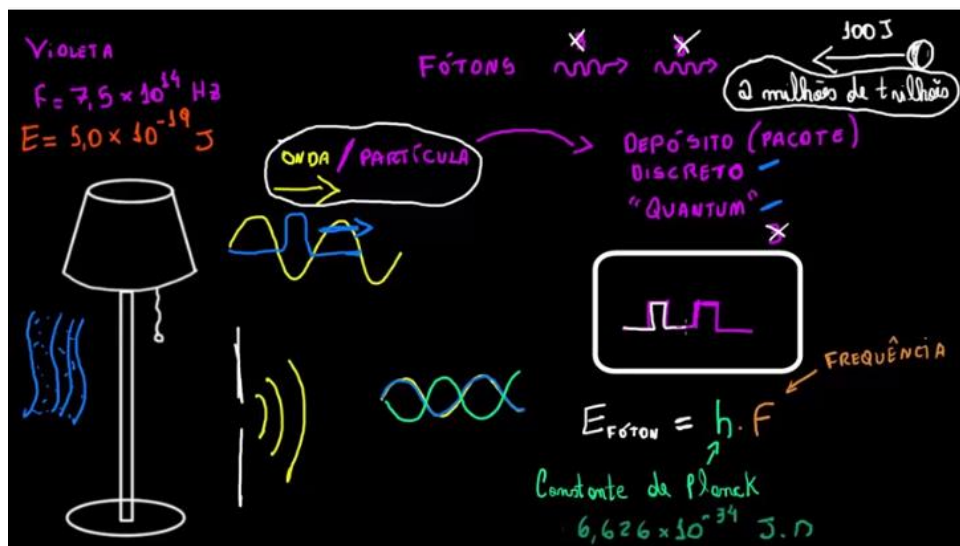 VIOLETA
F = 7,5 × 10¹⁴ Hz
E = 5,0 × 10⁻¹⁹ J
FÓTONS
100 J
2 milhões de trilhões
ONDA / PARTÍCULA
DEPÓSITO (PACOTE)
DISCRETO
"QUANTUM"
FREQUÊNCIA
E FÓTON = h . F
Constante de Planck
6,626 × 10⁻³⁴ J.s